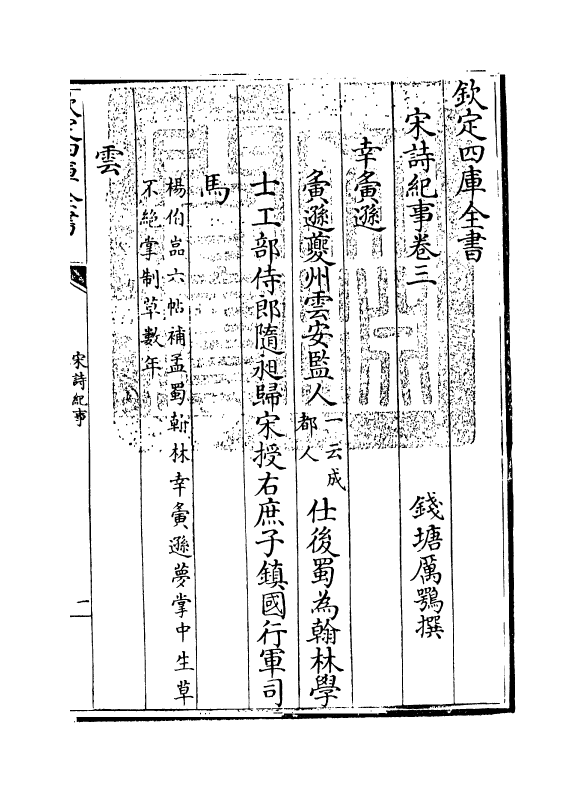 欽定四庫全書
宋詩紀事卷三
錢塘厲鶚撰
幸夤遜
夤遜夔州雲安監人一云成都人仕後蜀為翰林學
士工部侍郎隨昶歸宋授右庶子鎮國行軍司
馬
楊伯嵒六帖補孟蜀翰林幸夤遜夢掌中生草
不絶掌制草數年
雲
欽定四庫全書
宋詩紀事
一